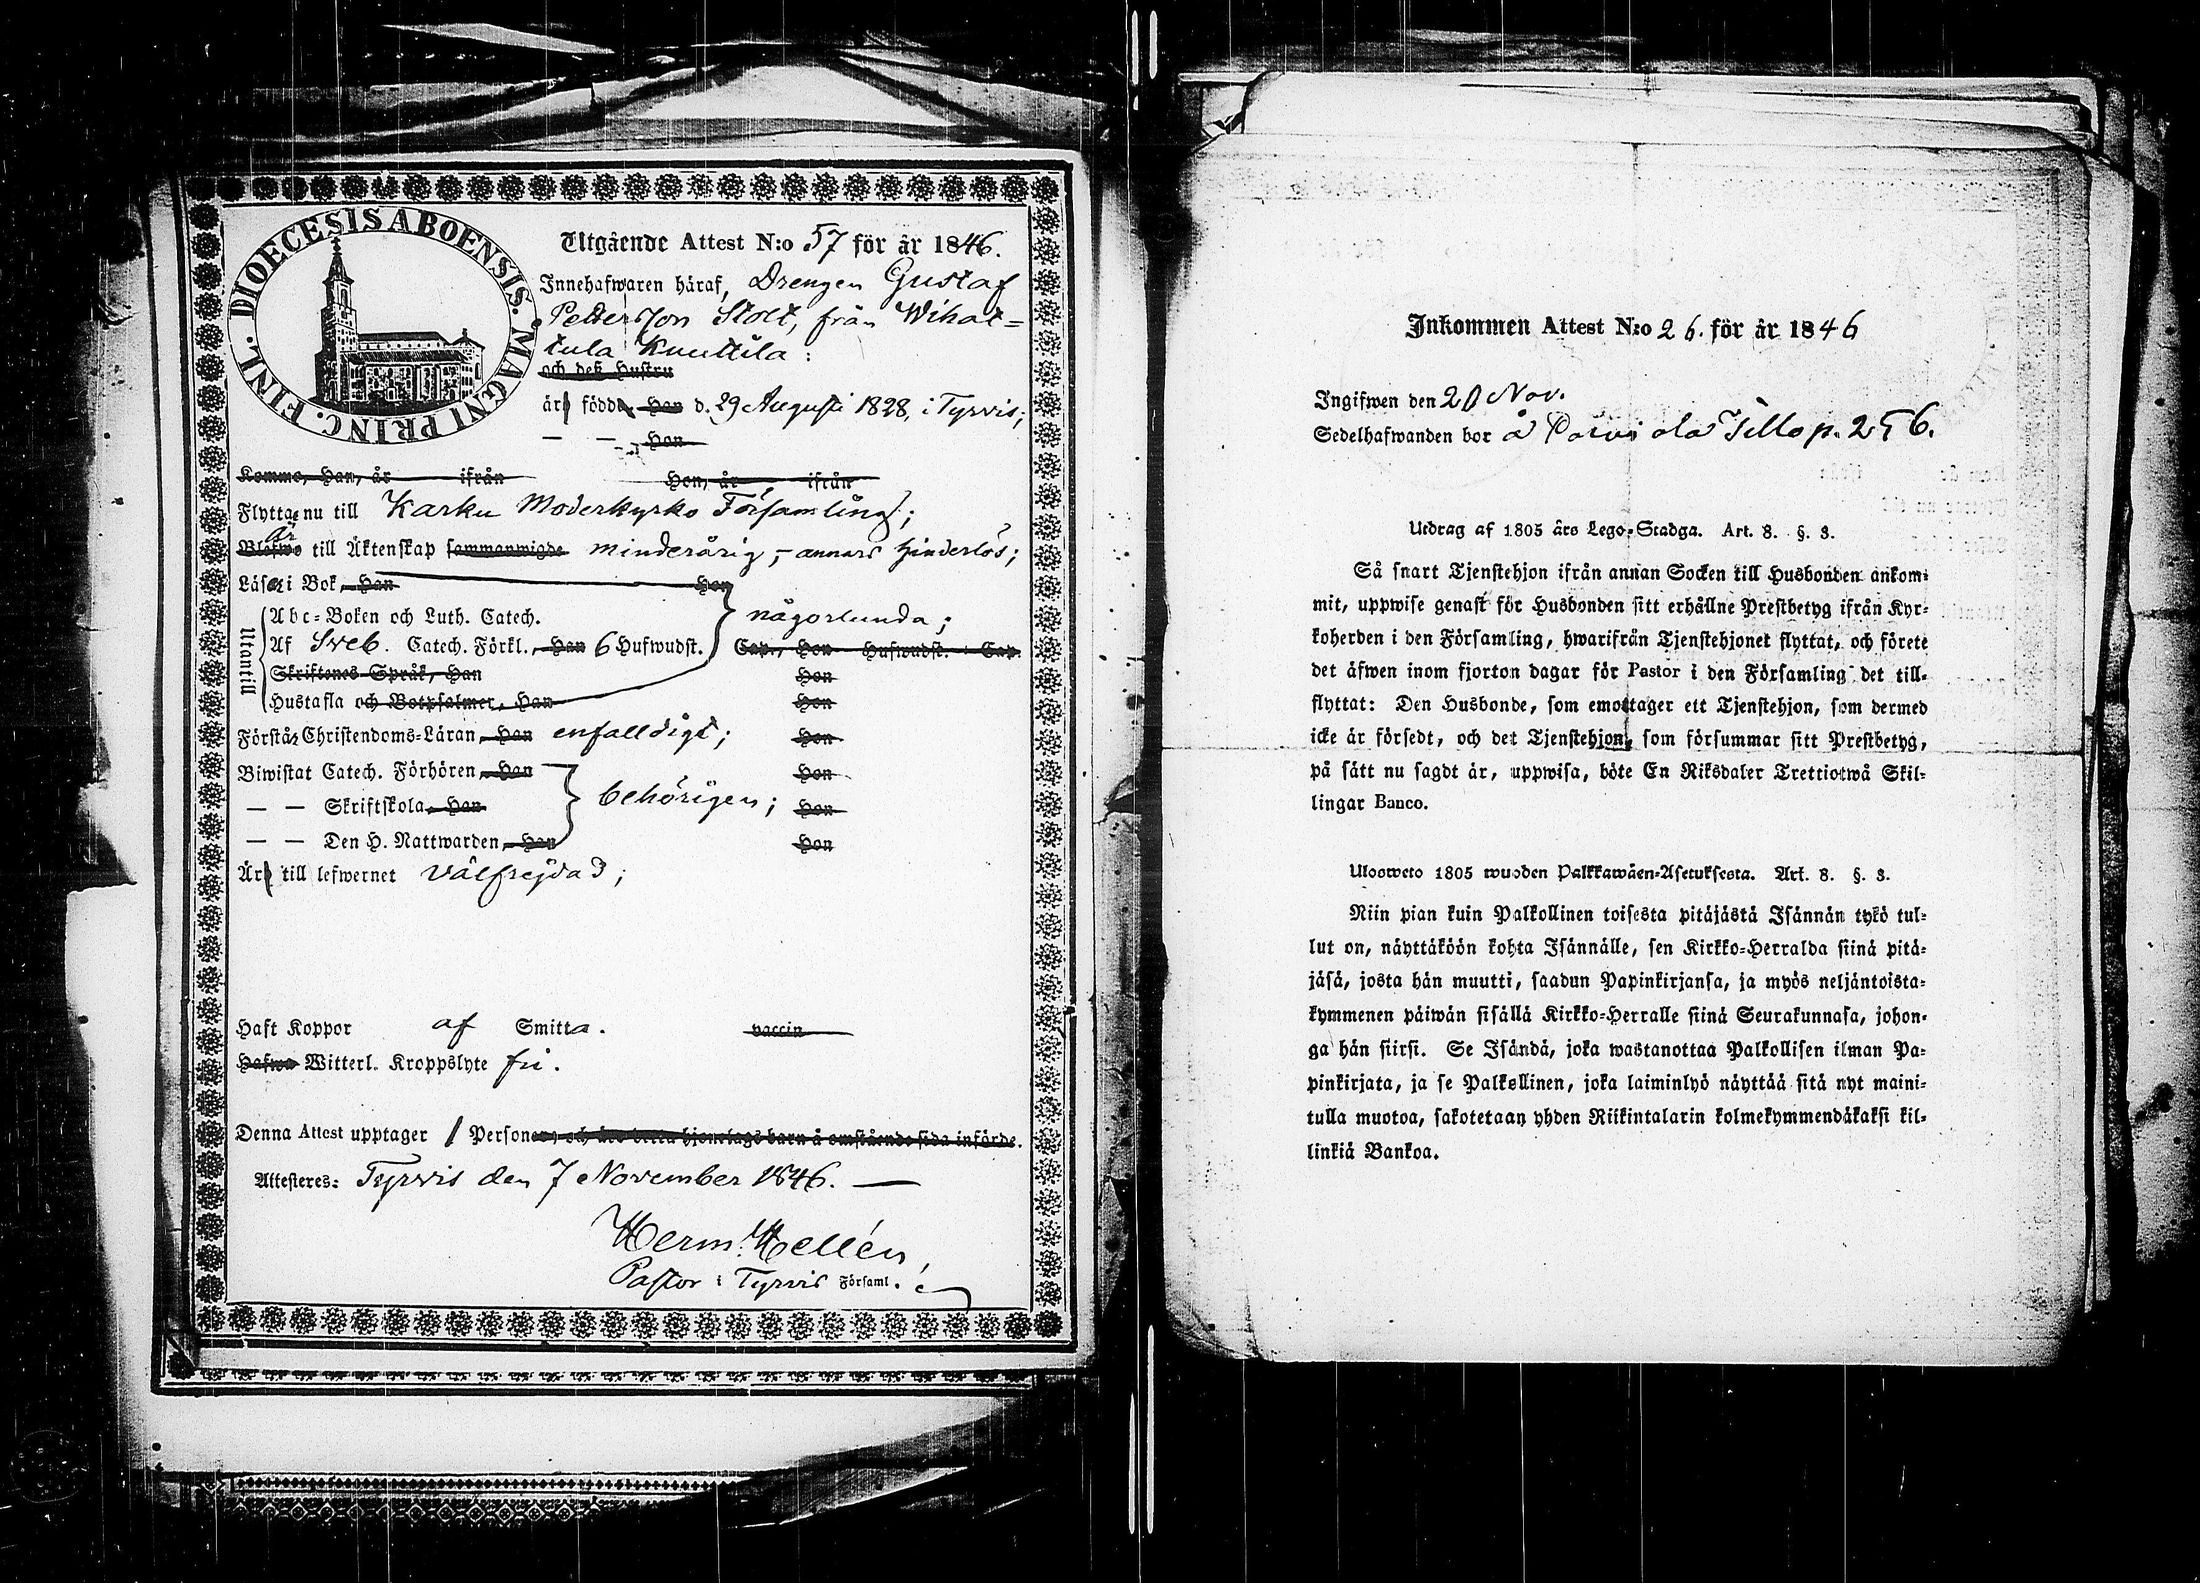 DIOECESIS ABOENSIS. MAGNI PRINC. FINL.
Utgående Attest N:o 57 för år 1846.
Innehafwaren häraf, Drengen Gustaf
Pettersson Stolt, från Wihat=
tula Knuttila:
och deß Hustru
är född, Han d. 29 Augusti 1828, i Tyrvis;
— — Hon
Komme, Han, år ifrån Hon, år ifrån
Flyttar nu till Karku Moderkyrko Församling;
Är
Blefwo till Äktenskap sammanwigde minderårig, annars hinderlös;
Läser i Bok, Han Hon
Utantill
Abc=Boken och Luth. Catech. någorlunda;
Af Sveb. Catech. Förkl., Han 6 Hufwudst. Cap., Hon Hufwudst. Cap.
Skriftenes Språk, Han Hon
Hustafla och Botpsalmer, Han Hon
Förstår Christendoms=Läran, Han enfalldigt; Hon
Biwistat Catech. Förhören, Han Hon
— — Skriftskola, Han behörigen; Hon
— — Den H. Nattwarden, Han Hon
Är till lefwernet välfrejdad;
Haft Koppor af Smitta. vaccin
Hafwa Witterl. Kroppslyte fri.
Denna Attest upptager 1 Personer, och äro detta hjonelags barn å omstående sida införde.
Attesteres: Tyrvis den 7 November 1846. —
Herm. Hellén
Pastor i Tyrvis Församl.
Inkommen Attest N:o 26. för år 1846
Ingifwen den 20 Nov.
Sedelhafwanden bor å p. 256.
Utdrag af 1805 års Lego=Stadga. Art. 8. §. 3.
Så snart Tjenstehjon ifrån annan Socken till Husbonden ankom=
mit, uppwise genast för Husbonden sitt erhållne Prestbetyg ifrån Kyr=
koherden i den Församling, hwarifrån Tjenstehjonet flyttat, och förete
det äfwen inom fjorton dagar för Pastor i den Församling det till=
flyttat: Den Husbonde, som emottager ett Tjenstehjon, som dermed
icke är försedt, och det Tjenstehjon, som försummar sitt Prestbetyg,
på sätt nu sagdt är, uppwisa, böte En Riksdaler Trettiotwå Skil=
lingar Banco.
Uloosweto 1805 wuoden Palkkawäen=Asetuksesta. Art. 8. §. 3.
Niin pian kuin Palkollinen toisesta pitäjästä Isännän tykö tul=
lut on, näyttäköön kohta Isännälle, sen Kirkko=Herralda siinä pitä=
jäsä, josta hän muutti, saadun Papinkirjansa, ja myös neljäntoista=
kymmenen päiwän sisällä Kirkko=Herralle siinä Seurakunnasa, johon=
ga hän siirsi. Se Isändä, joka wastanottaa Palkollisen ilman Pa=
pinkirjata, ja se Palkollinen, joka laiminlyö näyttää sitä nyt maini=
tulla muotoa, sakotetaan yhden Riikintalarin kolmekymmendäkaksi kil=
linkiä Bankoa.